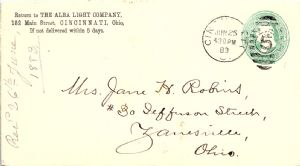 Return to THE ALBA LIGHT COMPANY,
182 Main Street, CINCINNATI, Ohio,
If not delivered within 5 days.
JUN 25
430 PM
83
Rec'd 26th June
1883
Mrs. Jane H. Robins,
#30 Jefferson Street,
Zanesville,
Ohio.